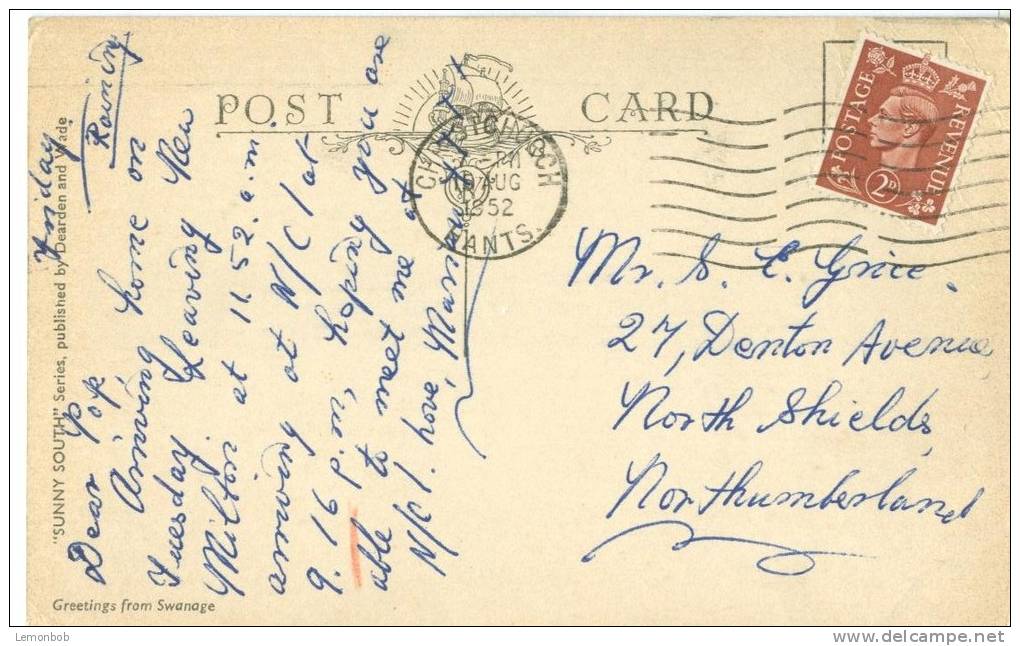 POST CARD
POSTAGE REVENUE
2D
CHRISTCHURCH
PM
15 AUG
1952
HANTS.
Friday
Raining
Dear Pop
Arriving home on
Tuesday Leaving New
Milton at 11.52 a.m.
arriving at N/C/ at
9.16 p.m, hoping you are
able to meet me at
N/c/. love, Mammy xxx
Mr. S. E. Grice.
27, Denton Avenue
North Shields,
Northumberland
"SUNNY SOUTH" Series, published by Dearden and Wade
Greetings from Swanage
Lemonbob
http://www.delcampe.net